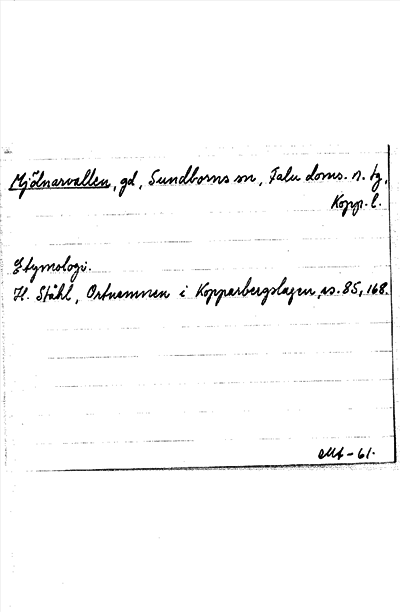 Mjölnarvallen, gd, Sundborns sn, Falu doms. n. tg,
Kopp. l.
Etymologi.
H. Ståhl, Ortnamnen i Kopparbergslagen, ss. 85, 168.
-61.